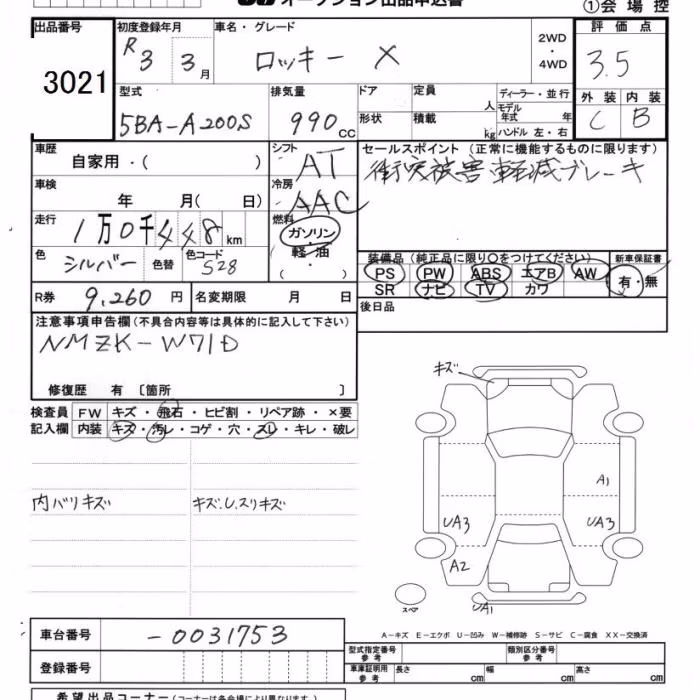 オークション出品申込書
①会場控
出品番号
3021
初度登録年月
R3 3月
車名・グレード
ロッキー X
2WD
・
4WD
評価点
3.5
外装 内装
C B
型式
5BA-A200S
排気量
990cc
ドア
形状
定員
人
積載
kg
ディーラー・並行
モデル年式 年
ハンドル 左・右
車歴
自家用・( )
シフト
AT
セールスポイント (正常に機能するものに限ります)
衝突被害軽減ブレーキ
車検
年 月( 日)
冷房
AAC
走行
1万0千448km
燃料
ガソリン
・
軽油
( )
色
シルバー
色替
色コード
S28
装備品(純正品に限り○をつけてください)
PS PW ABS エアB AW
SR ナビ TV カワ
新車保証書
有・無
R券
9,260円
名変期限 月 日
後日品
注意事項申告欄(不具合内容等は具体的に記入して下さい)
NMZK-W71D
修復歴 有 〔箇所 〕
検査員
記入欄
FW キズ・飛石・ヒビ割・リペア跡・×要
内装 キズ・汚レ・コゲ・穴・スレ・キレ・破レ
内バリキズ
キズ.U.スリキズ
キズ
A1
UA3
UA3
A2
UA1
スペア
A-キズ E-エクボ U-凹み W-補修跡 S-サビ C-腐食 XX-交換済
車台番号
-0031753
登録番号
型式指定番号
参考
類別区分番号
参考
車庫証明用
参考
長さ cm
幅 cm
高さ cm
希望出品コーナー(コーナーは各会場により異なります)